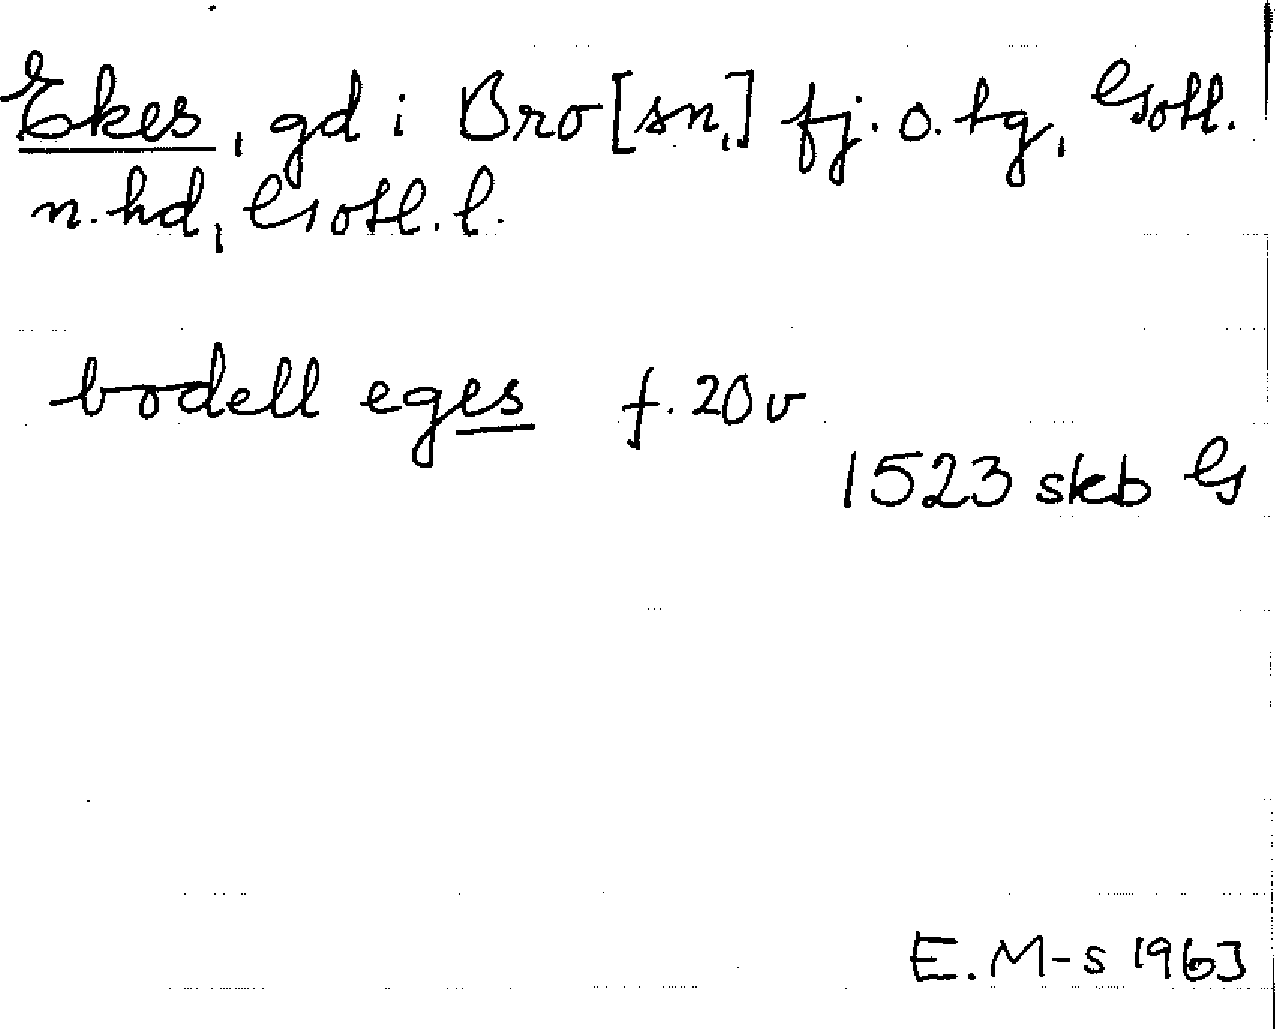 Ekes, gd i Bro [sn,] fj. o. tg, Gotl.
n. hd, Gotl. l.
bodell eges f. 20 v
1523 skb G
E. M-s 1963